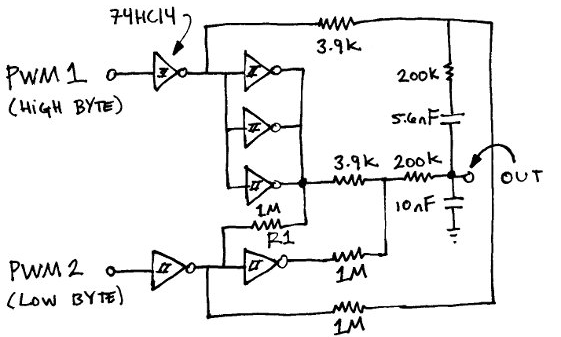 74HC14
3.9K
PWM 1
(HIGH BYTE)
200K
5.6nF
3.9K
200K
OUT
10nF
1M
R1
PWM 2
(LOW BYTE)
1M
1M